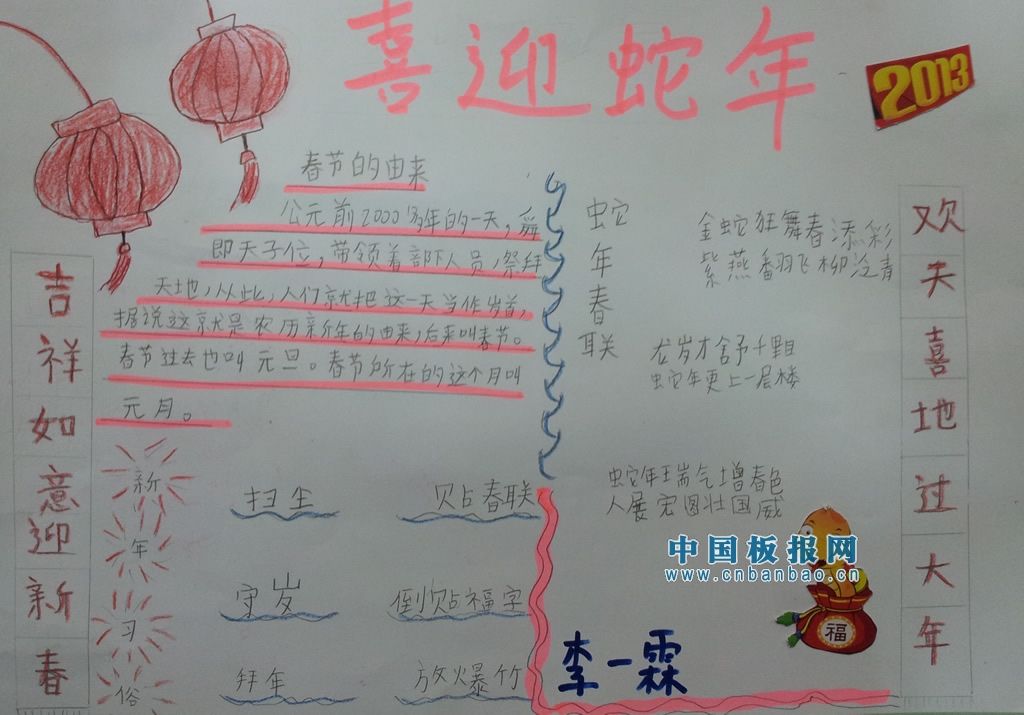 喜迎蛇年
2013
春节的由来
公元前2000多年的一天，舜
即天子位，带领着部下人员，祭拜
天地，从此，人们就把这一天当作岁首，
据说这就是农历新年的由来，后来叫春节。
春节过去也叫元旦。春节所在的这个月叫
元月。
吉祥如意迎新春
新年习俗
扫尘
贴春联
守岁
倒贴福字
拜年
放爆竹
蛇年春联
金蛇狂舞春添彩
紫燕翻飞柳泛青
龙岁才舍予千里目
蛇年更上一层楼
蛇年瑞气增春色
人展宏图壮国威
欢天喜地过大年
中国板报网
www.cnbanbao.cn
福
李一霖